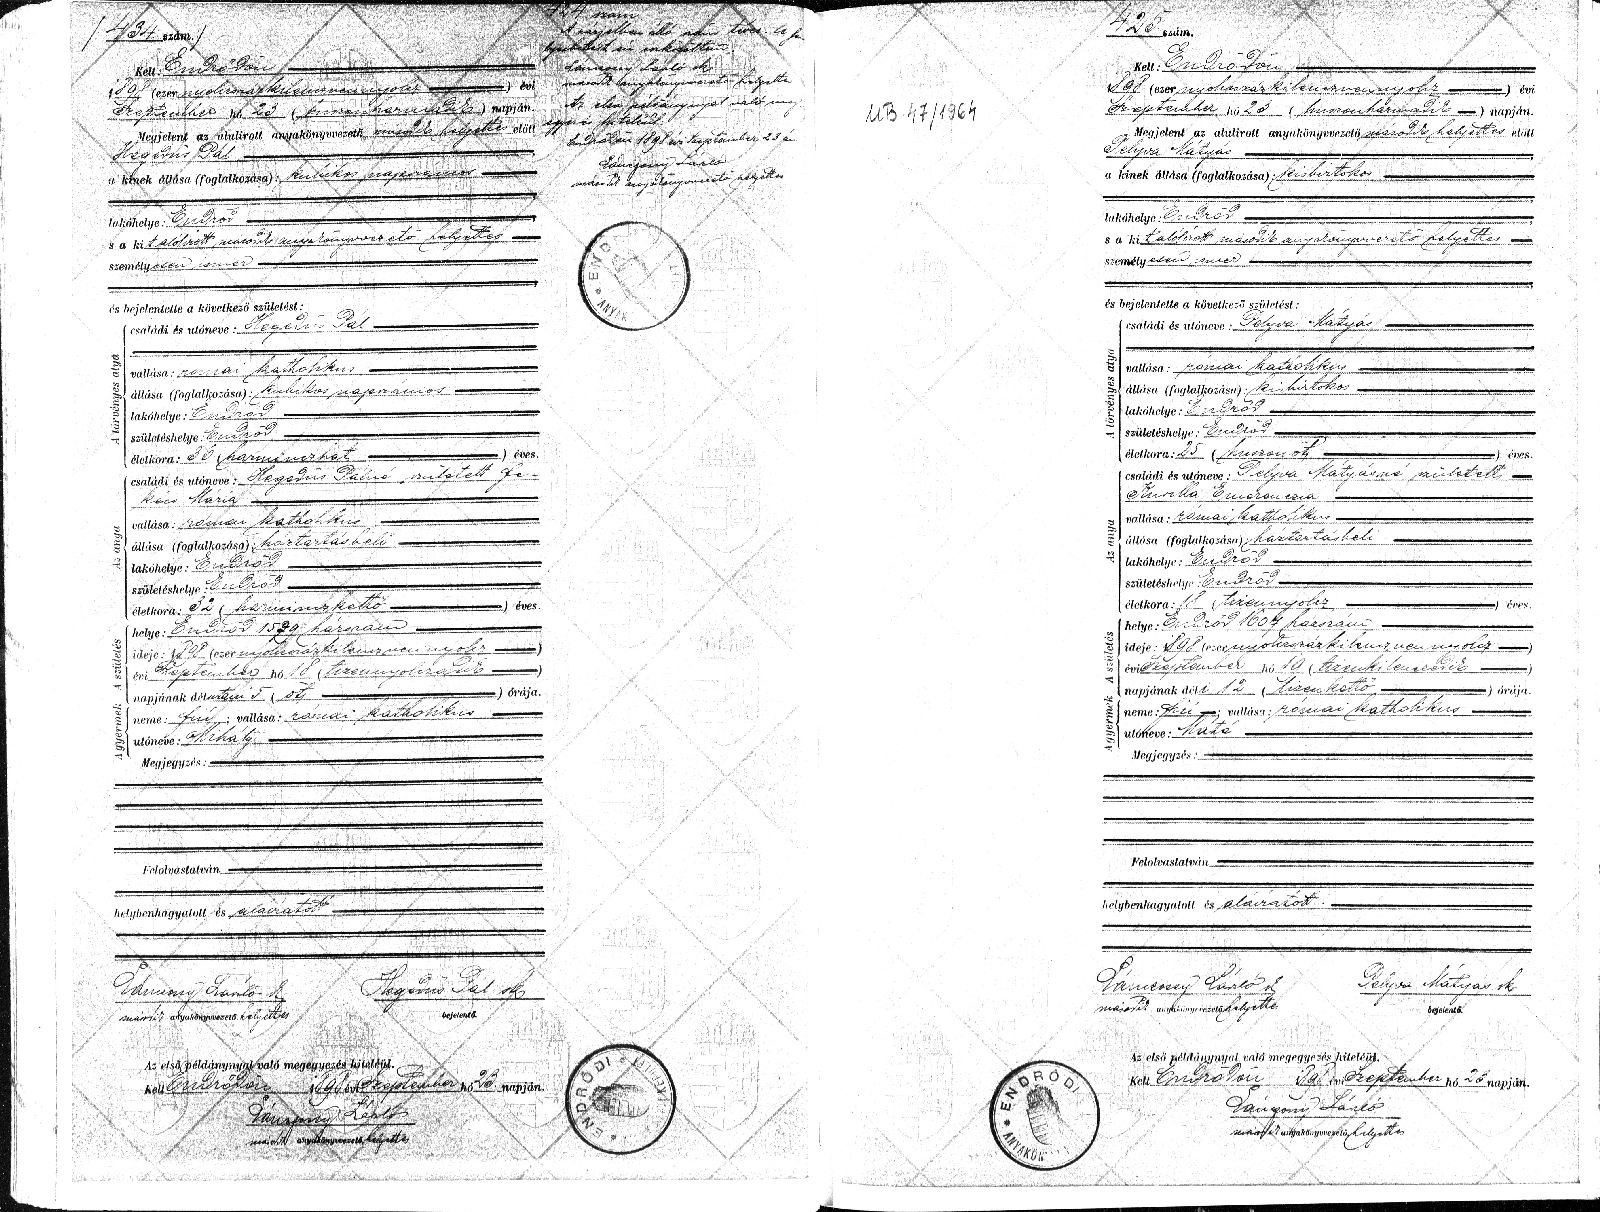 434 szám.
Kelt: Endrődön
1898 (ezernyolcszázkilenczvennyolcz) évi
Szeptember hó 23 (huszonharmadik) napján.
Megjelent az alulirott anyakönyvvezető helyettes előtt
Hegedüs Pál
a kinek állása (foglalkozása): kubikos napszámos
lakóhelye: Endrőd
s a kit alólirott anyakönyvvezető helyettes
személyesen ismer
és bejelentette a következő születést:
A törvényes atya
családi és utóneve: Hegedüs Pál
vallása: római katholikus
állása (foglalkozása): kubikos napszámos
lakóhelye: Endrőd
születéshelye: Endrőd
életkora: 36 (harminczhat) éves.
Az anya
családi és utóneve: Hegedüs Pálné született
Mária
vallása: római katholikus
állása (foglalkozása): háztartásbeli
lakóhelye: Endrőd
születéshelye: Endrőd
életkora: 32 (harminczkettő) éves.
A gyermek A születés
helye: Endrőd házszám
ideje: 1898 (ezernyolcszázkilenczvennyolcz)
évi Szeptember hó 18 (tizennyolczadik)
napjának délutáni 5 (öt) órája.
neme: fiú; vallása: római katholikus
utóneve: Mihály
Megjegyzés:
Felolvastatván
helybenhagyatott és aláiratott
László Hegedüs Pál sk
anyakönyvvezető helyettes bejelentő.
Az első példánynyal való megegyezés hiteléül.
Kelt Endrődön 1898 évi Szeptember hó 23 napján.
László
anyakönyvvezető helyettes
424 szám
László sk
anyakönyvvezető helyettes
Az első példánynyal való meg-
Endrődön 1898 évi szeptember 23 án
László
anyakönyvvezető helyettes
ENDRŐDI
UB 47/1964
425 szám.
Kelt: Endrődön
1898 (ezernyolcszázkilenczvennyolcz) évi
Szeptember hó 23 (huszonharmadik) napján.
Megjelent az alulirott anyakönyvvezető helyettes előtt
Pelyva Mátyás
a kinek állása (foglalkozása): kisbirtokos
lakóhelye: Endrőd
s a kit alólirott anyakönyvvezető helyettes
személyesen ismer
és bejelentette a következő születést:
A törvényes atya
családi és utóneve: Pelyva Mátyás
vallása: római katholikus
állása (foglalkozása): kisbirtokos
lakóhelye: Endrőd
születéshelye: Endrőd
életkora: 25 (huszonöt) éves.
Az anya
családi és utóneve: Pelyva Mátyásné született
vallása: római katholikus
állása (foglalkozása): háztartásbeli
lakóhelye: Endrőd
születéshelye: Endrőd
életkora: 18 (tizennyolcz) éves.
A gyermek A születés
helye: Endrőd 1607 házszám
ideje: 1898 (ezernyolcszázkilenczvennyolcz)
évi Szeptember hó 19 (tizenkilenczedik)
napjának déli 12 (tizenkettő) órája.
neme: fiú; vallása: római katholikus
utóneve: Máté
Megjegyzés:
Felolvastatván
helybenhagyatott és aláiratott.
László sk Pelyva Mátyás sk
anyakönyvvezető helyettes bejelentő.
Az első példánynyal való megegyezés hiteléül.
Kelt Endrődön 1898 évi Szeptember hó 23 napján.
László
anyakönyvvezető helyettes
ENDRŐDI